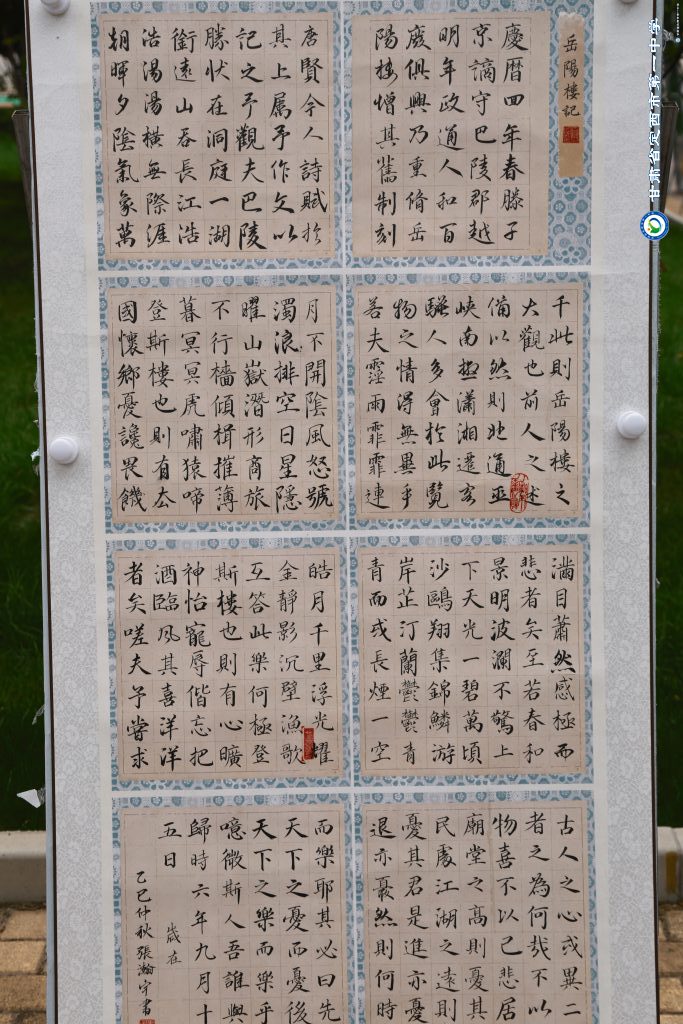 岳陽樓記
慶曆四年春滕子
京謫守巴陵郡越
明年政通人和百
廢俱興乃重脩岳
陽樓增其舊制刻
唐賢今人詩賦於
其上屬予作文以
記之予觀夫巴陵
勝狀在洞庭一湖
銜遠山吞長江浩
浩湯湯橫無際涯
朝暉夕陰氣象萬
千此則岳陽樓之
大觀也前人之述
備以然則北通巫
峽南極瀟湘遷客
騷人多會於此覽
物之情得無異乎
若夫霪雨霏霏連
月不開陰風怒號
濁浪排空日星隱
曜山嶽潛形商旅
不行檣傾楫摧薄
暮冥冥虎嘯猿啼
登斯樓也則有去
國懷鄉憂讒畏譏
滿目蕭然感極而
悲者矣至若春和
景明波瀾不驚上
下天光一碧萬頃
沙鷗翔集錦鱗游
岸芷汀蘭鬱鬱青
青而或長煙一空
皓月千里浮光耀
金靜影沉璧漁歌
互答此樂何極登
斯樓也則有心曠
神怡寵辱偕忘把
酒臨風其喜洋洋
者矣嗟夫予嘗求
古人之心或異二
者之為何哉不以
物喜不以己悲居
廟堂之高則憂其
民處江湖之遠則
憂其君是進亦憂
退亦憂然則何時
而樂耶其必曰先
天下之憂而憂後
天下之樂而樂乎
噫微斯人吾誰與
歸時六年九月十
五日
歲在
乙巳仲秋張瀚宇書
甘肃省定西市第一中学